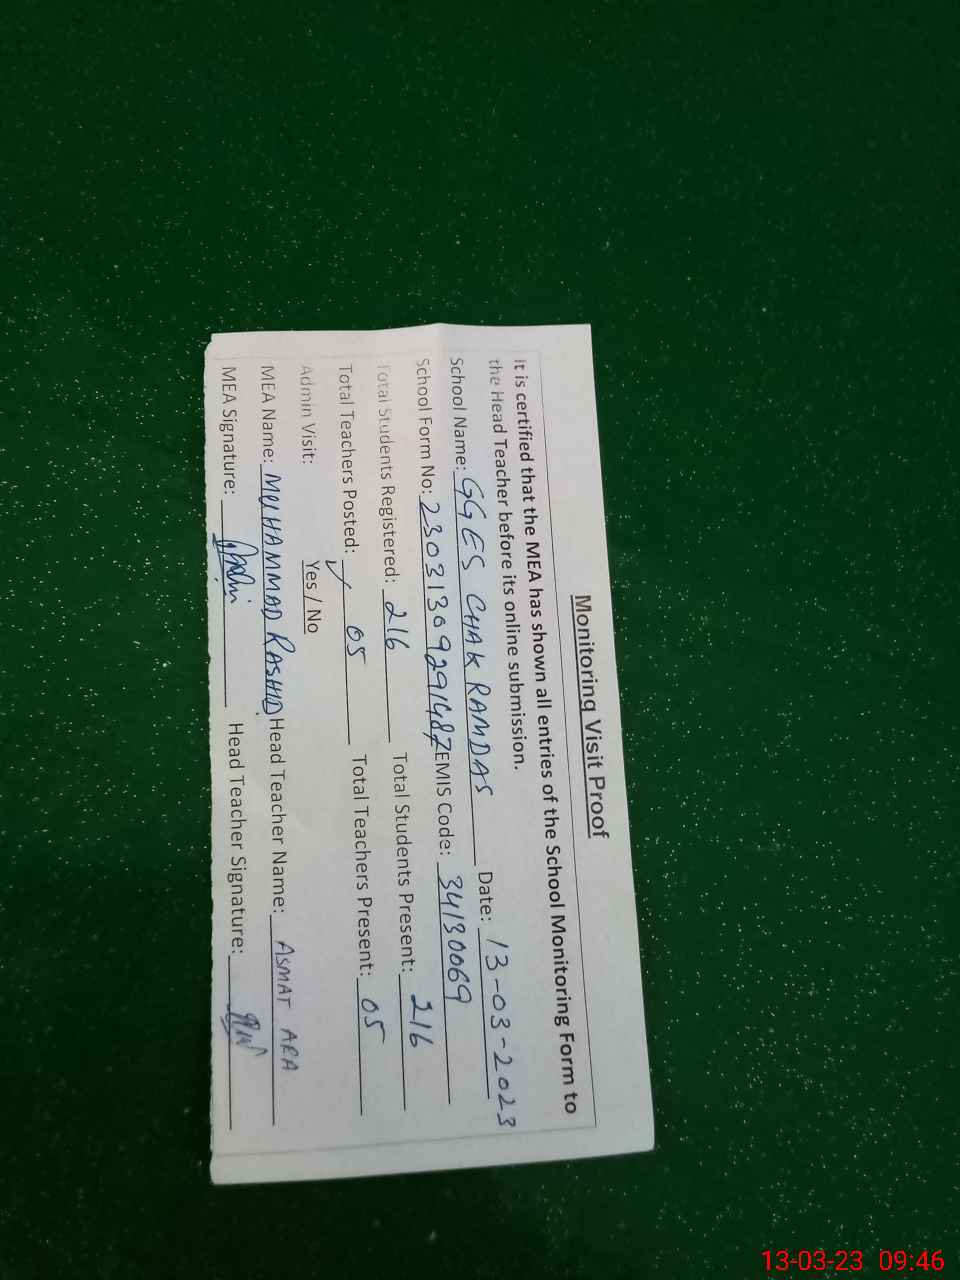 Monitoring Visit Proof
It is certified that the MEA has shown all entries of the School Monitoring Form to
the Head Teacher before its online submission.
School Name: GGES CHAK RAMDAS Date: 13-03-2023
School Form No: 23031309291487 EMIS Code: 34130069
Total Students Registered: 216 Total Students Present: 216
Total Teachers Posted: 05 Total Teachers Present: 05
Admin Visit: Yes / No
MEA Name: MUHAMMAD RASHID Head Teacher Name: ASMAT ARA
MEA Signature: Head Teacher Signature:
13-03-23 09:46